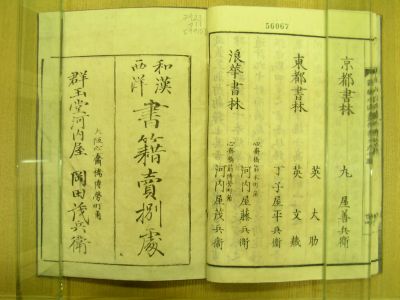 56067
京都書林
丸屋善兵衛
東都書林
英大助
英文蔵
丁子屋平兵衛
浪華書林
河内屋藤兵衛
心斎橋筋博労町角
河内屋茂兵衛
和漢
西洋
書籍賣捌處
大阪心斎橋博労町角
群玉堂河内屋
岡田茂兵衛